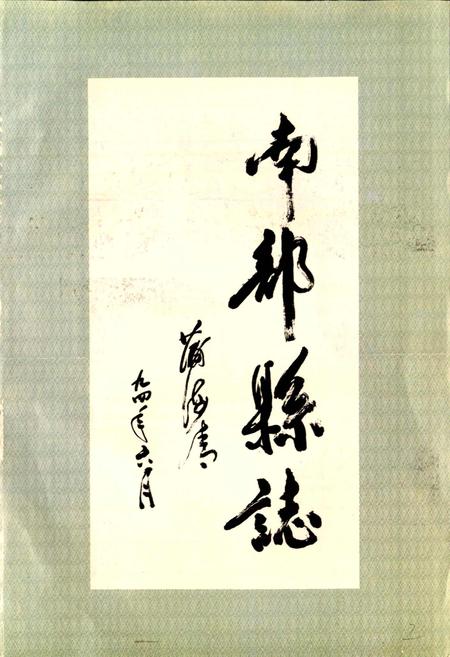 南部縣誌
蒲海清
九四年六月